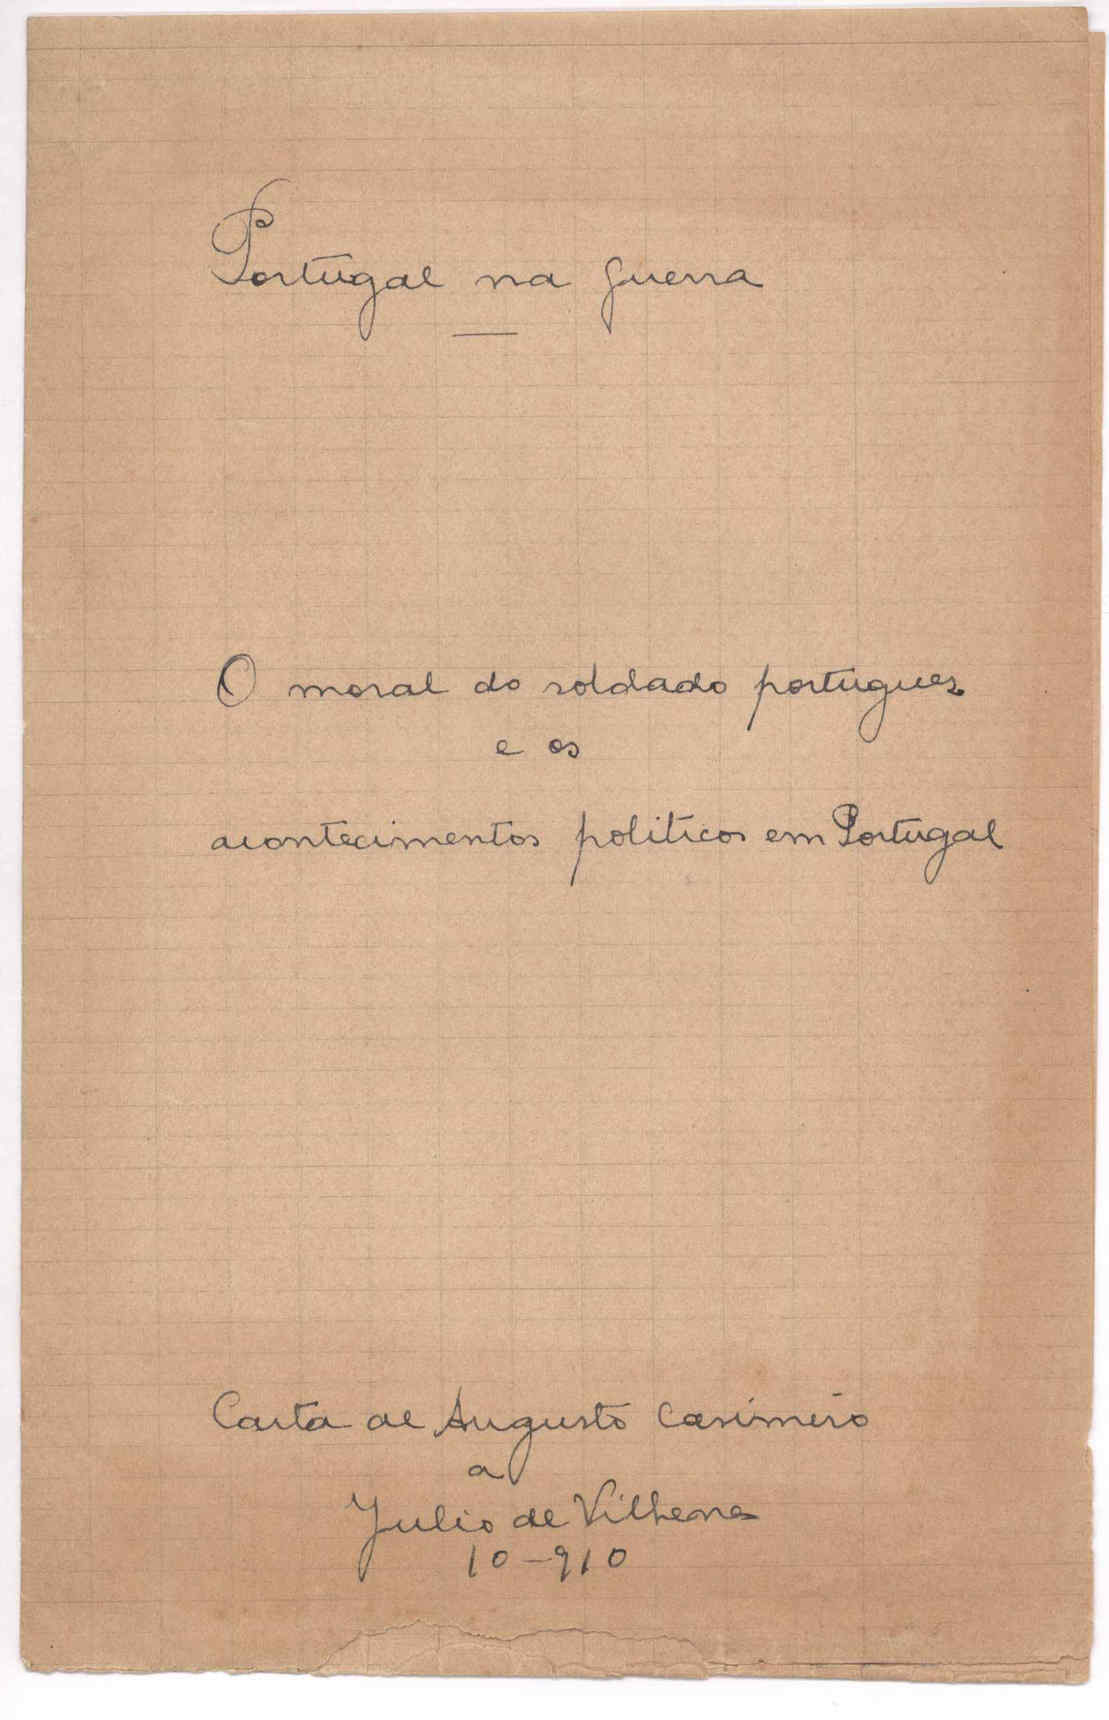 Portugal na guerra
O moral do soldado portuguez
e os
acontecimentos politicos em Portugal
Carta de Augusto Casimiro
a
Julio de Vilhena
10-910